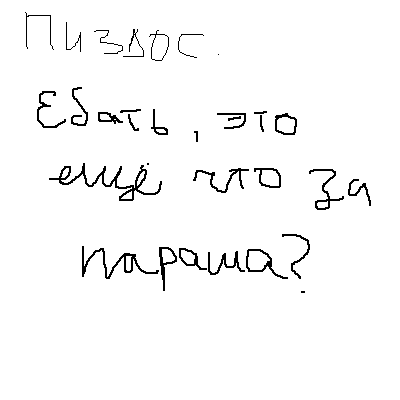 Пиздос.
Ебать, это
ещё что за
параша?